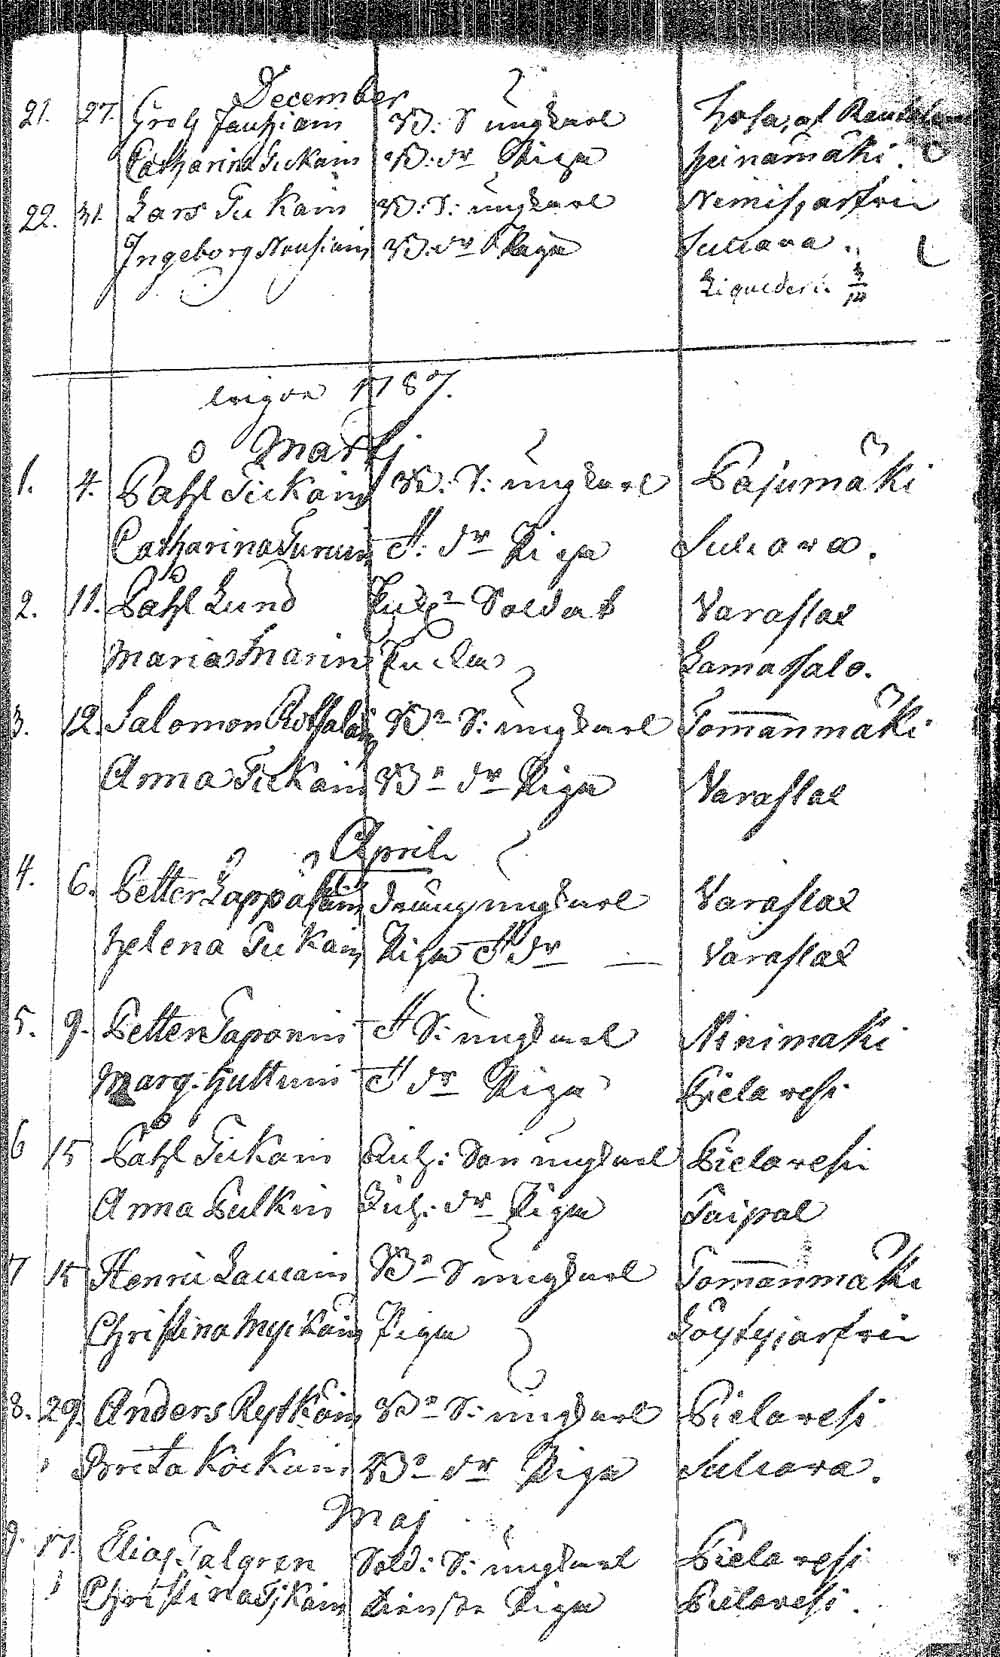 December
21. 27. Jauhiain B: S ungkarl
Catharina Tickain B: dr Piga heinämäki
22. 31. Lars Tickain B: S: ungkarl Nemisjärfvi
Ingeborg Nousiain B: dr Piga Suliava.
wigde 1787.
Martij
1. 4. Påhl Tickain B: S: ungkarl Pajumäki
Catharina Turuin dr Piga Suliava.
2. 11. Påhl Lund Soldat Varaslax
Maria Marin Encka Lamasalo.
3. 12. Salomon Rossalain Be S: ungkarl Tommanmäki
Anna Tickain Be dr Piga Varaslax
April
4. 6. Petter Lappalain dräng ungkarl Varaslax
helena Tickain Piga dr — Varaslax
5. 9. Petter Taponin S: ungkarl Ninimäki
Marg. huttuin dr Piga Pielavesi
6 15 Påhl Tickain Son ungkarl Pielavesi
Anna Pulkin dr Piga Taipal
7 15 Henric Laucain Be S ungkarl Tommanmäki
Christina Myckäin Piga Löytyjärfvi
8. 29. Anders Rytkön Be S: ungkarl Pielavesi
Brita Kåckain Be dr Piga Suliava.
Maj
9. 17. Elias Talgren Sold: S: ungkarl Pielavesi
Christina Tickain Piga Pielavesi.